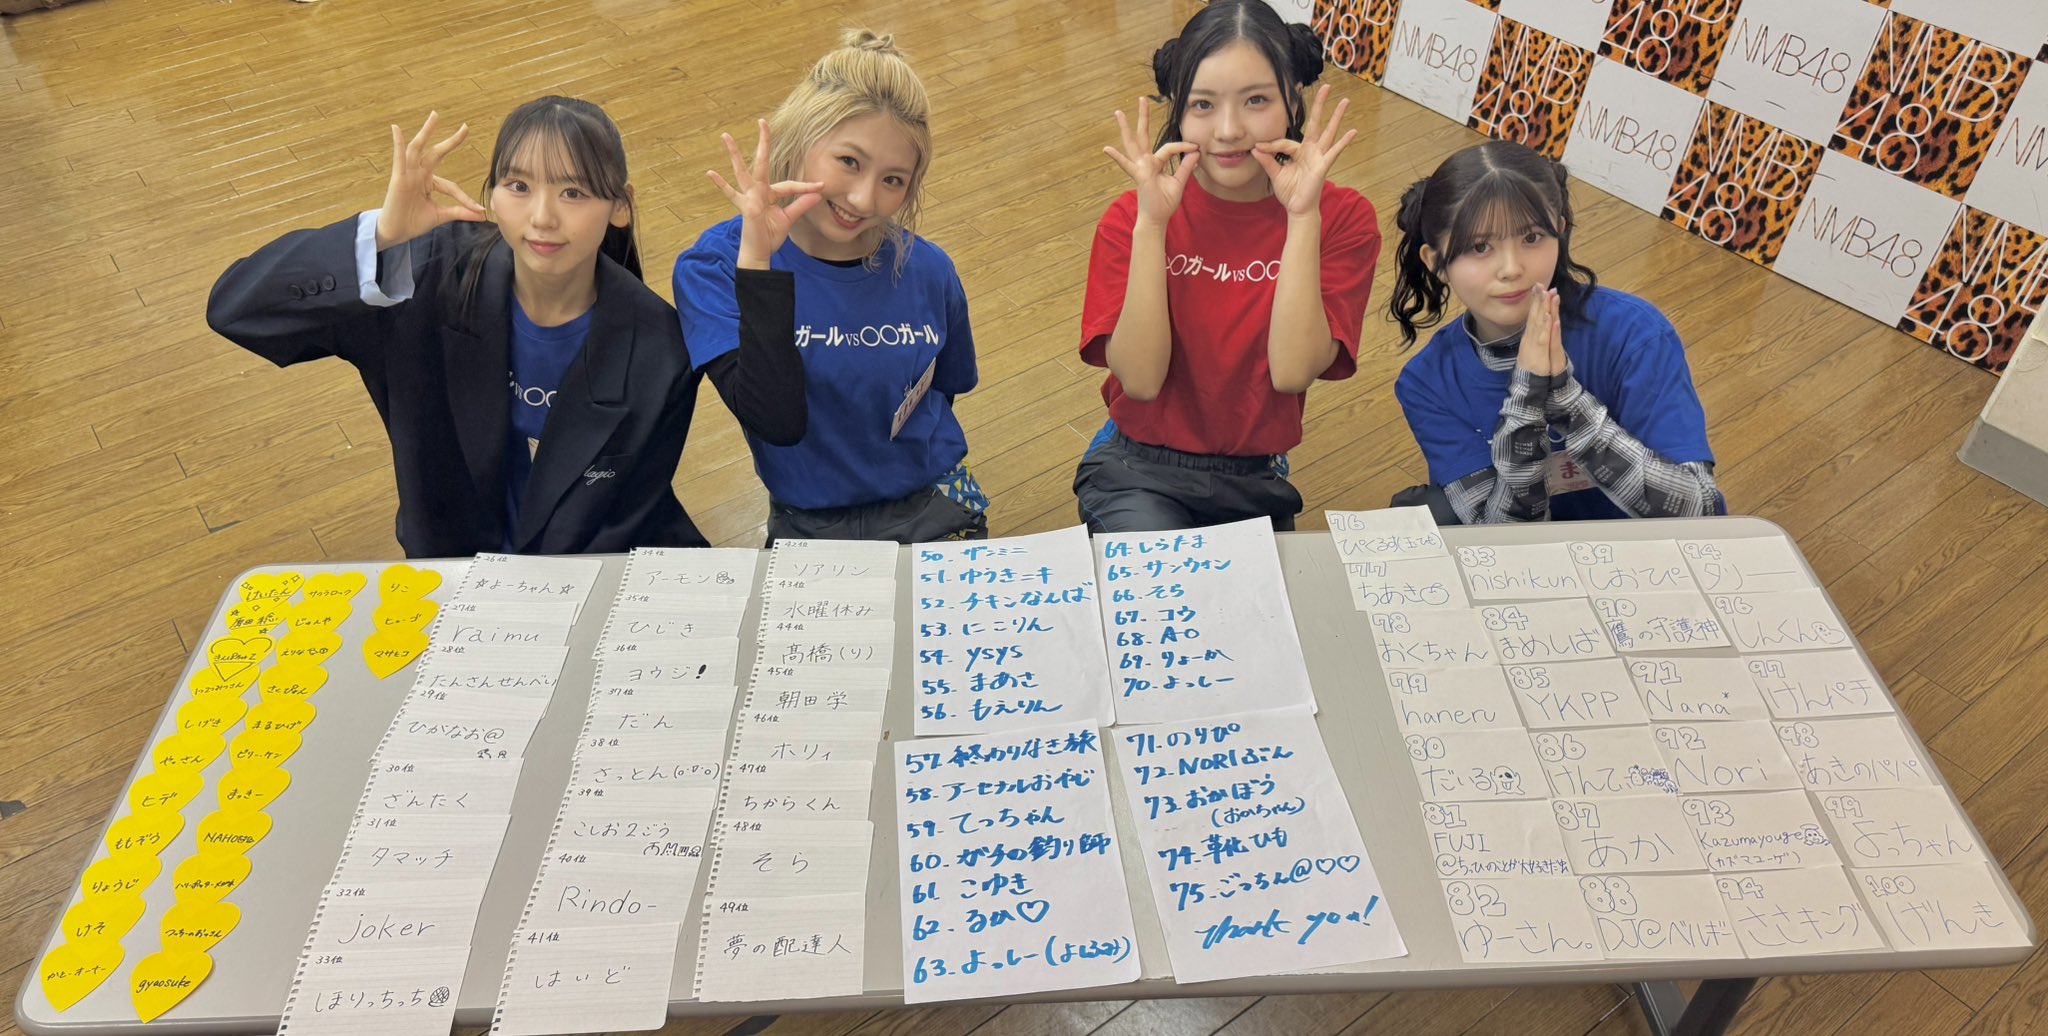 NMB48
NMB48
NMB48
NMB48
NMB48
ガールvs〇〇ガール
〇ガールvs〇〇
lagic
ま
けいたん
サウナロック
りこ
じゅんや
ヒューゴ
えりな
マサヒコ
さくぴょん
しげき
まるひげ
やっさん
ビリーケン
ヒデ
まっきー
ももぞう
りょうじ
けそ
かとーオーナー
gyaosuke
26位
☆よーちゃん☆
27位
raimu
28位
たんさんせんべい
29位
ひがなお@
30位
ざんたく
31位
タマッチ
32位
joker
33位
しほりっちっち
34位
アーモン
35位
ひじき
36位
ヨウジ!
37位
だん
38位
さっとん(o・∇・o)
39位
こしお2ごう
40位
Rindo-
41位
はいど
42位
ソアリン
43位
水曜休み
44位
髙橋(り)
45位
朝田学
46位
ホリィ
47位
ちからくん
48位
そら
49位
夢の配達人
50. ザンミニ
51. ゆうきニキ
52. チキンなんば
53. にこりん
54. ysys
55. まあさ
56. もえりん
57. 終わりなき旅
58. アーセナルおやじ
59. てっちゃん
60. ガチの釣り師
61. こゆき
62. るか♡
63. よっしー(よしふみ)
64. しらたま
65. サンウォン
66. そら
67. コウ
68. AO
69. りょーか
70. よっしー
71. のりぴ
72. NORIぶん
73. おかぼう
(おかちゃん)
74. 靴ひも
75. ごっちん@♡♡
thank you!
76
ぴくるす(玉ひも)
77
ちあき
78
おくちゃん
79
haneru
80
だいる
81
FUJI
@ちぃひのことが大好きだお
82
ゆーさん。
83
nishikun
84
まめしば
85
YKPP
86
けんてぃ
87
あか
88
DJ@ベルギー
89
しおてぴー
90
鷹の守護神
91
Nana*
92
Nori
93
Kazumayouge
(カズマユーゲ)
94
ささキング
94
タリー
96
しんくん
97
けんパチ
98
あきのパパ
99
よっちゃん
100
げんき